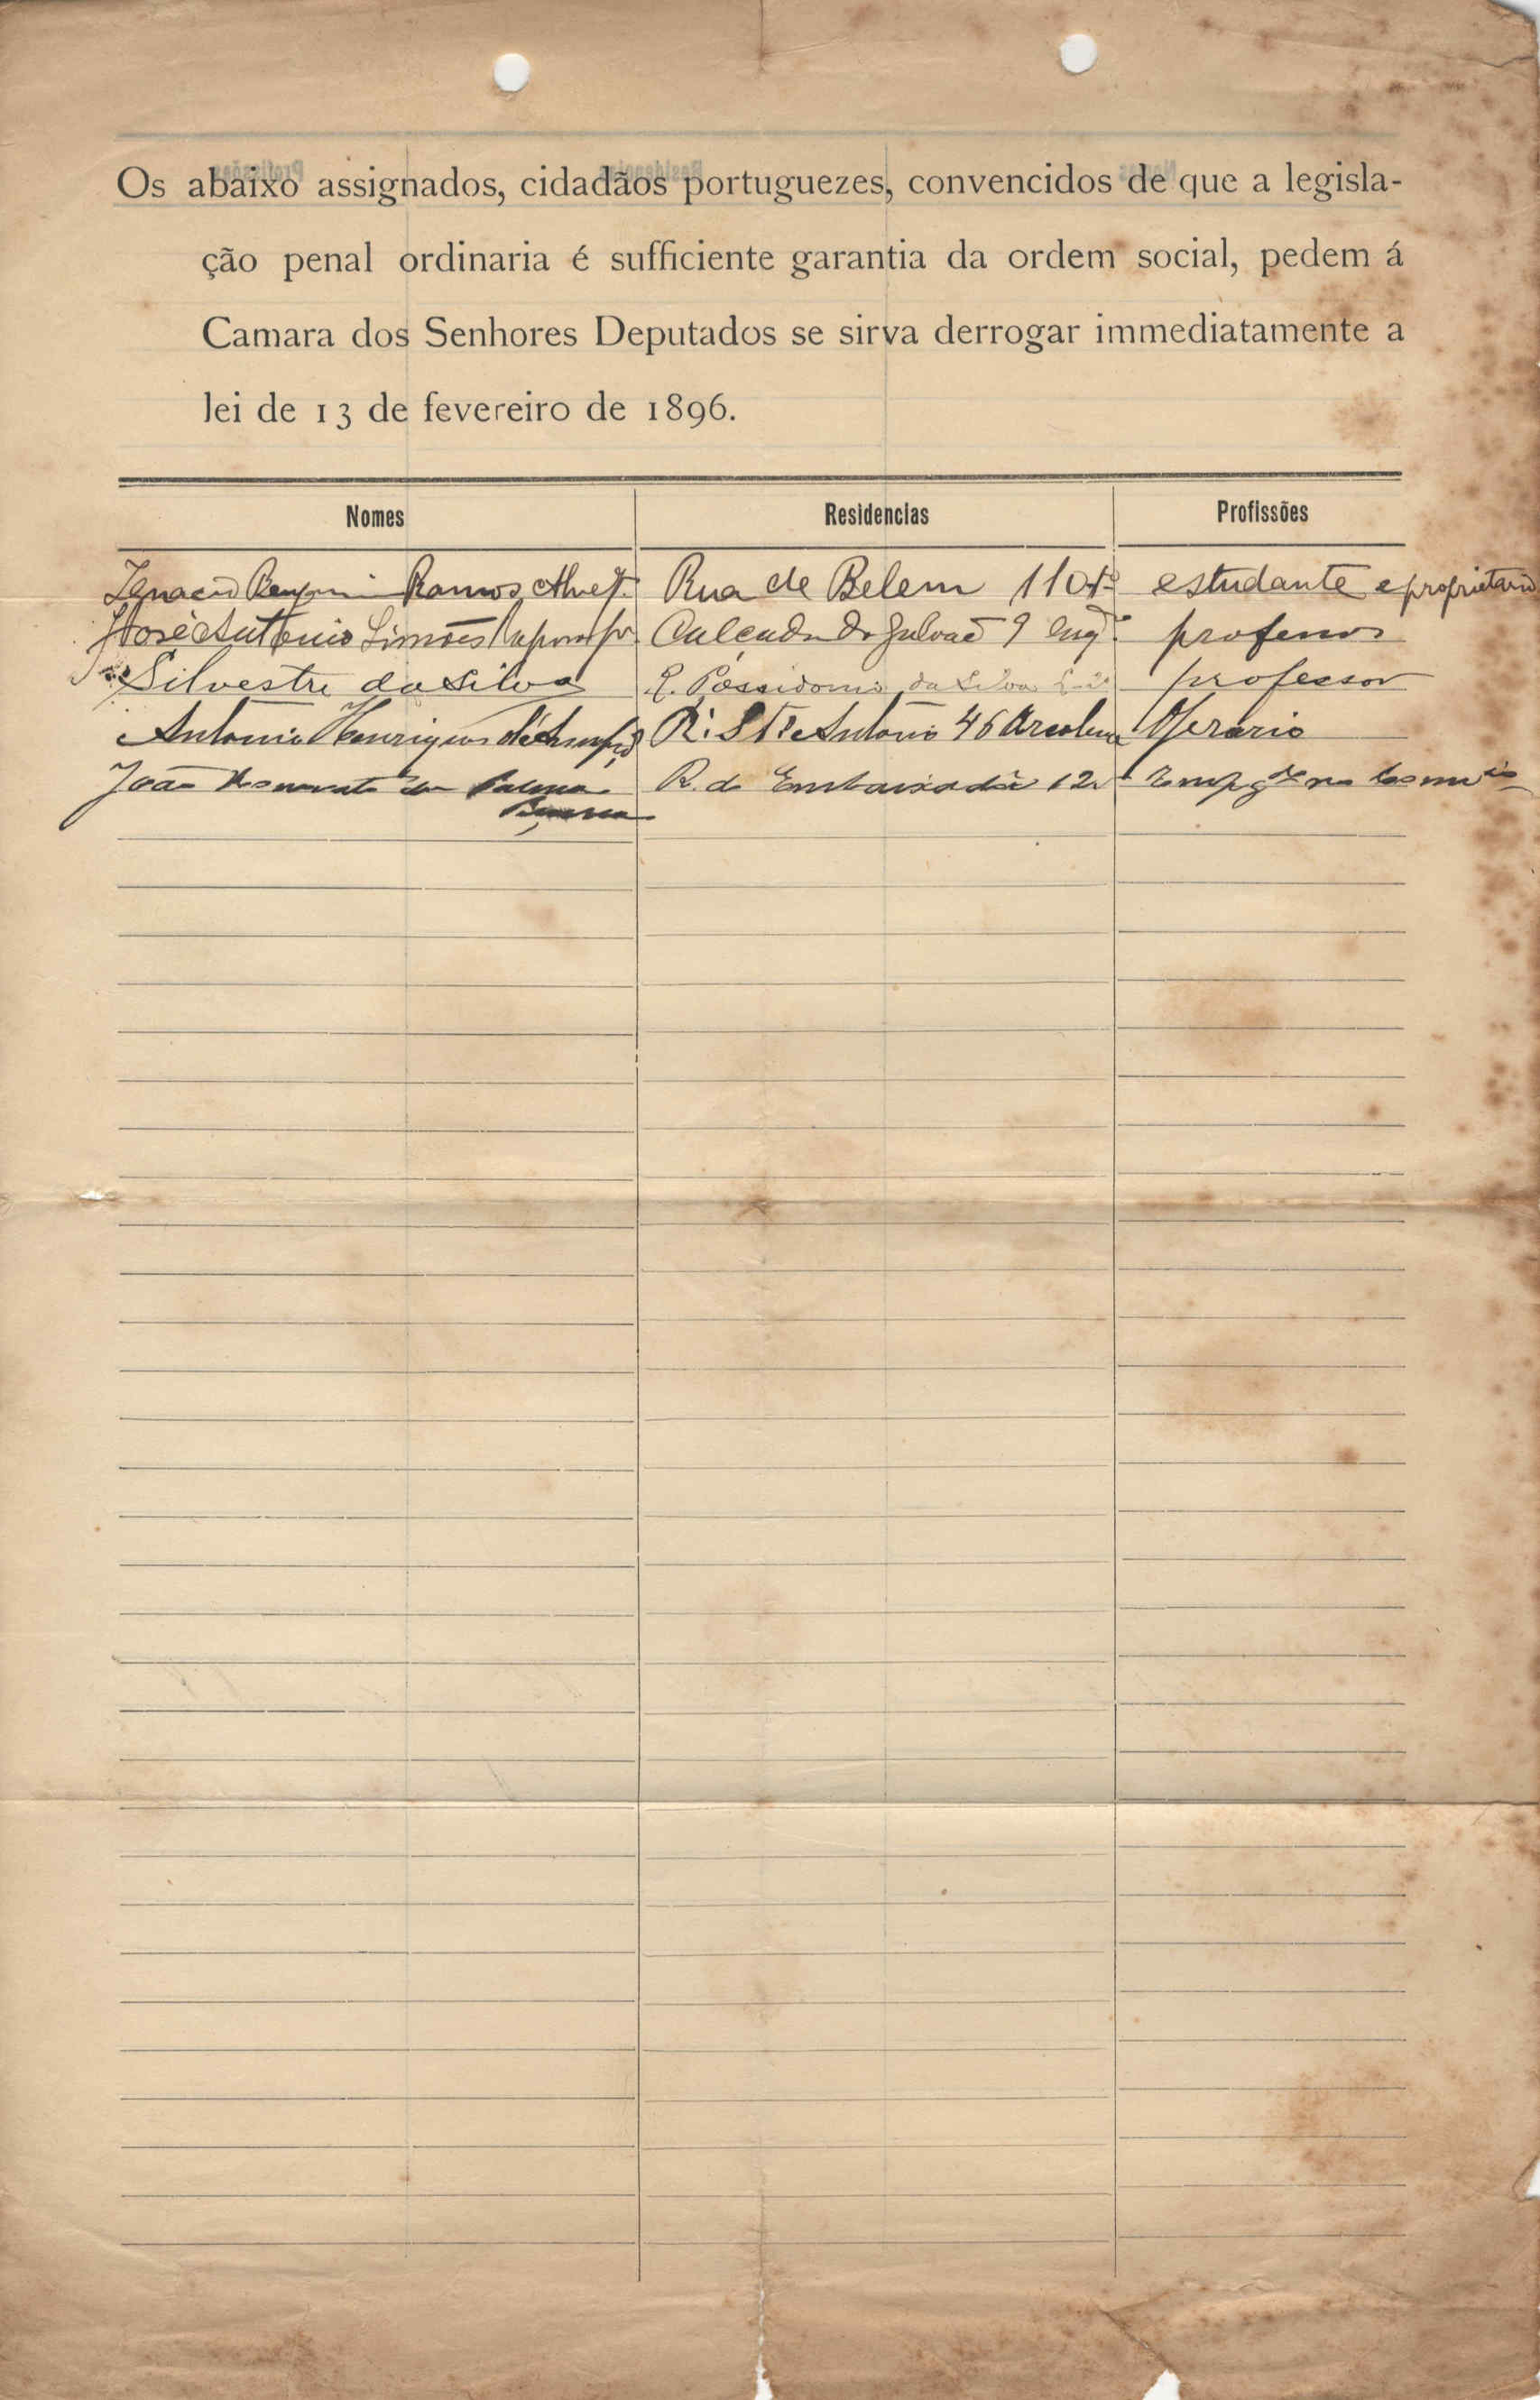 Os abaixo assignados, cidadãos portuguezes, convencidos de que a legisla-
ção penal ordinaria é sufficiente garantia da ordem social, pedem á
Camara dos Senhores Deputados se sirva derrogar immediatamente a
lei de 13 de fevereiro de 1896.
Nomes Residencias Profissões
Ignacio Ramos Rua de Belem estudante e proprietario
José Antonio Simões Calçada do Galvão 9 professor
Silvestre da Silva R. Possidonio da Silva professor
Antonio Henriques R. Sto Antonio 46 Arcolena Operario
João da Palma R. da Embaixador 12